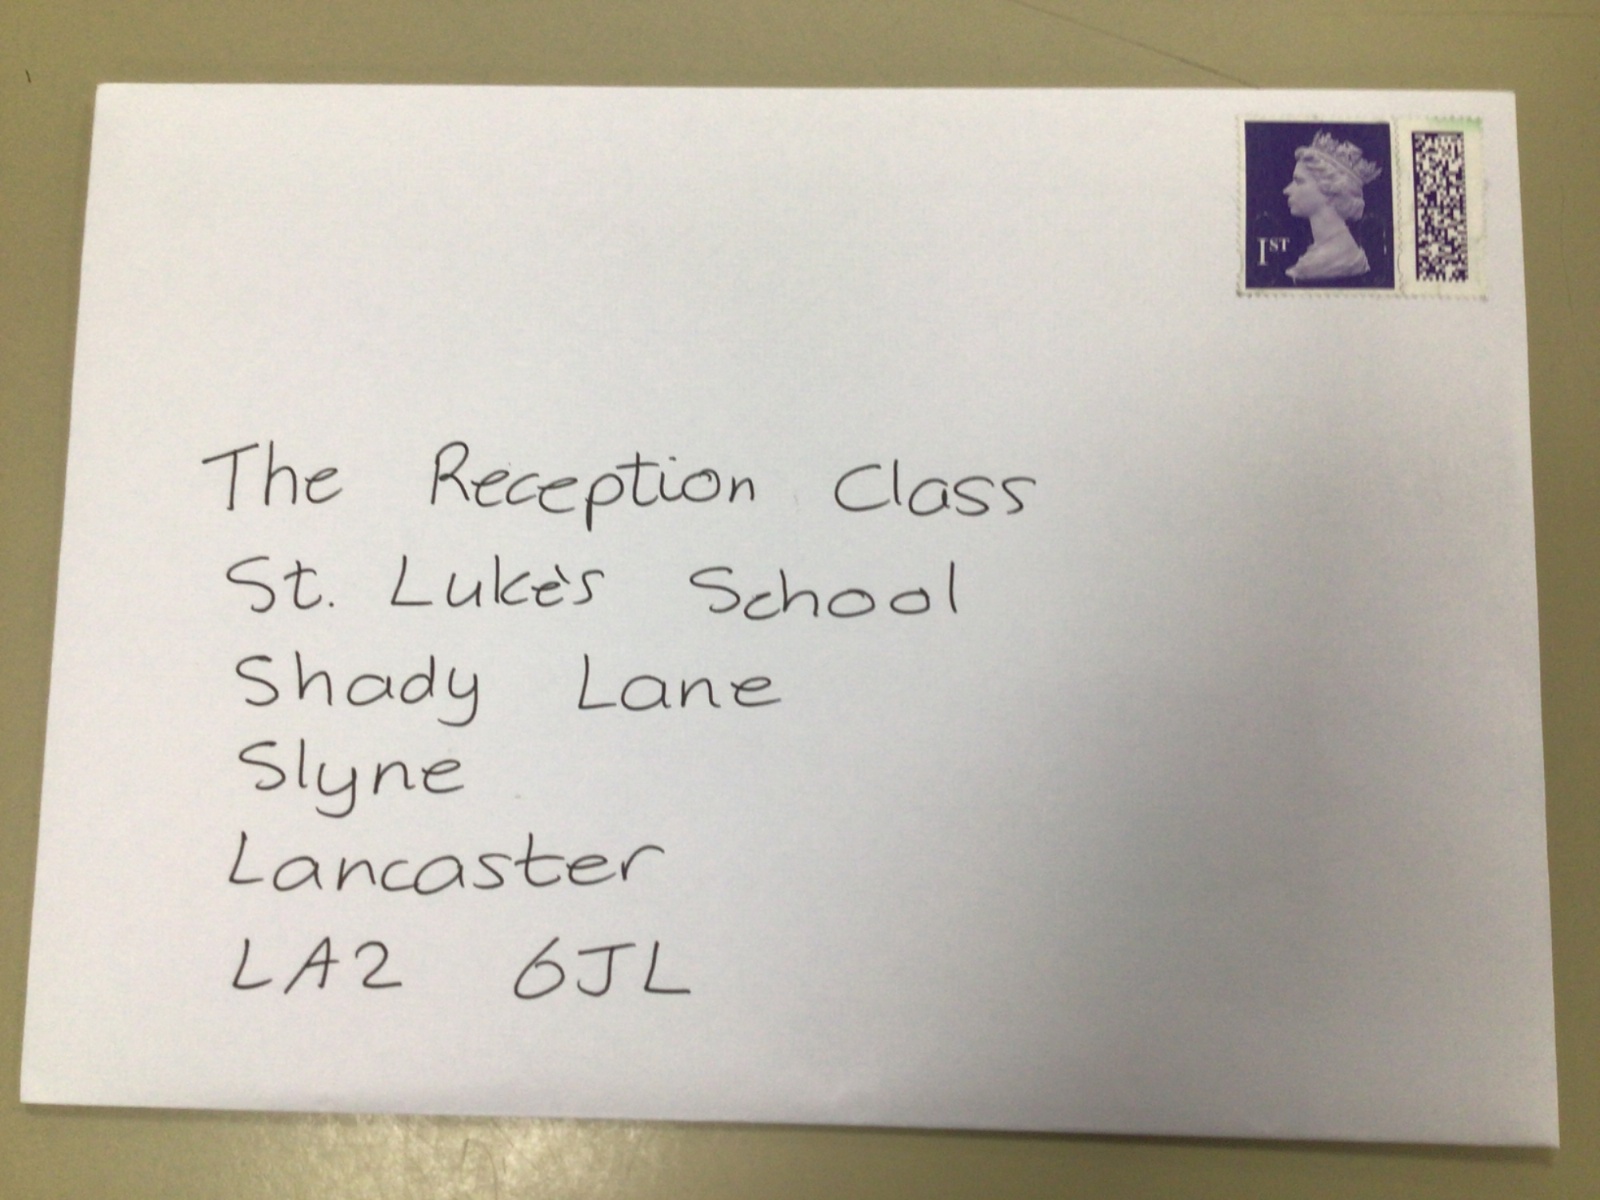 1ST
The Reception Class
St. Luke's School
Shady Lane
Slyne
Lancaster
LA2 6JL